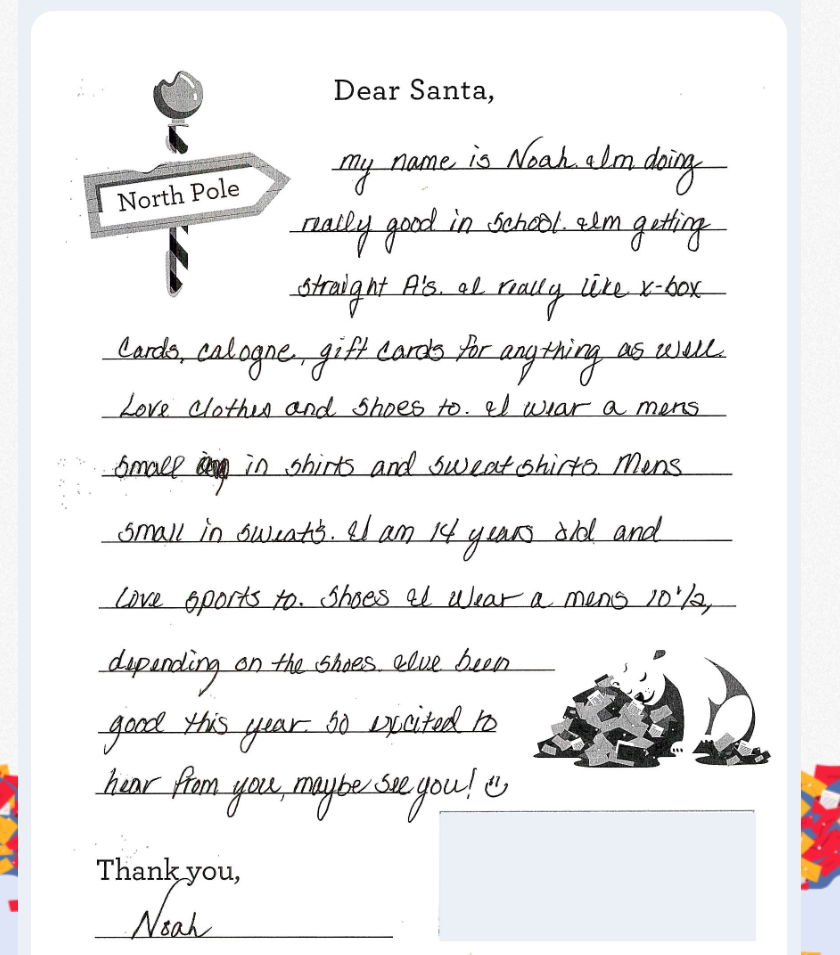 Dear Santa,
North Pole
my name is Noah. I'm doing
really good in school. I'm getting
straight A's. I really like x-box
Cards, calogne, gift cards for anything as well
Love clothes and shoes to. I wear a mens
small in shirts and sweatshirts. Mens
small in sweats. I am 14 years old and
Love sports to. Shoes I wear a mens 10 1/2,
depending on the shoes. I've been
good this year. So excited to
hear from you, maybe see you!
Thank you,
Noah